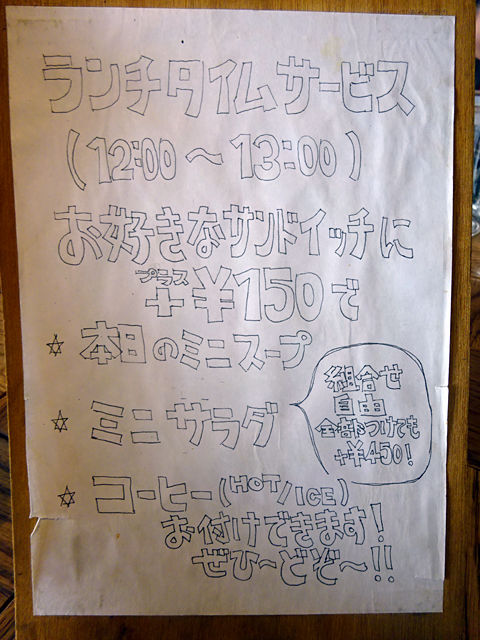 ランチタイムサービス
(12:00～13:00)
お好きなサンドイッチに
プラス
+¥150で
☆本日のミニスープ
☆ミニサラダ
組合せ
自由
全部つけても
+¥450!
☆コーヒー(HOT/ICE)
お付けできます!
ぜひ～どぞ～!!